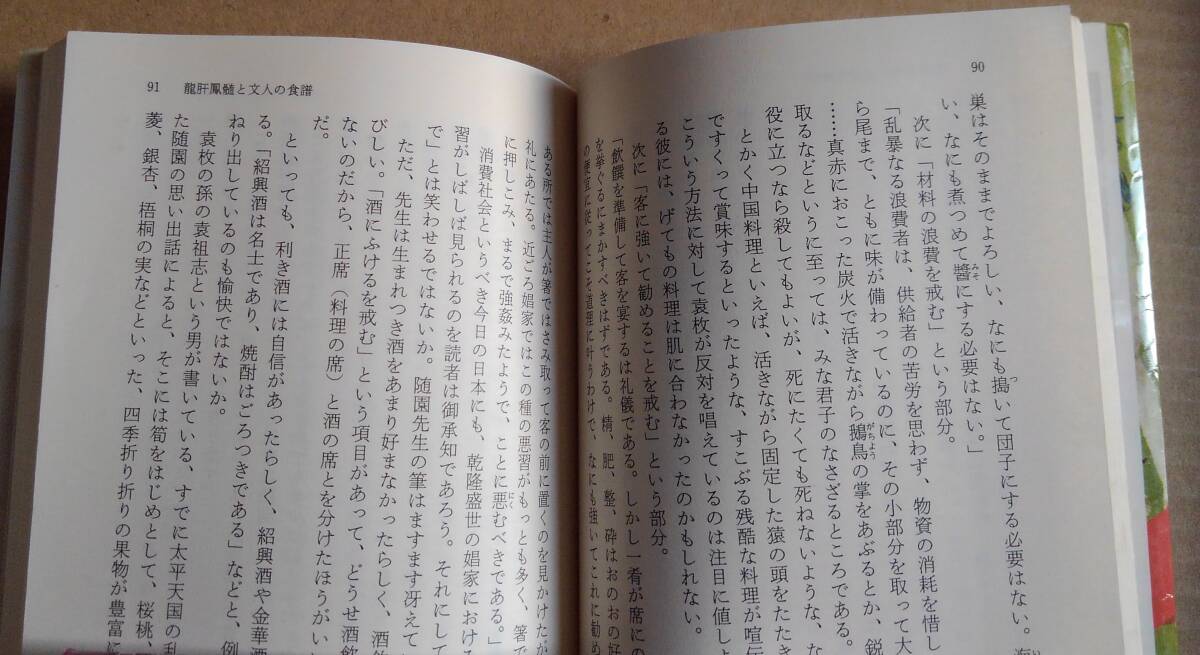 90
巣はそのままでよろしい、なにも搗いて団子にする必要はない。海
い、なにも煮つめて醬にする必要はない。」
次に「材料の浪費を戒む」という部分。
「乱暴なる浪費者は、供給者の苦労を思わず、物資の消耗を惜し
ら尾まで、ともに味が備わっているのに、その小部分を取って大
……真赤におこった炭火で活きながら鵝鳥の掌をあぶるとか、鋭
取るなどというに至っては、みな君子のなさざるところである。
役に立つなら殺してもよいが、死にたくても死ねないような、な
とかく中国料理といえば、活きながら固定した猿の頭をたたき
ですくって賞味するといったような、すこぶる残酷な料理が喧伝
こういう方法に対して袁枚が反対を唱えているのは注目に値しよ
る彼には、げてもの料理は肌に合わなかったのかもしれない。
次に「客に強いて勧めることを戒む」という部分。
「飲饌を準備して客を宴するは礼儀である。しかし一肴が席にの
を挙ぐるにまかすべきはずである。精、肥、整、砕はおのおの好
の便宜に従ってこそ道理に叶うわけで、なにも強いてこれに勧め
91 龍肝鳳髄と文人の食譜
ある所では主人が箸ではさみ取って客の前に置くのを見かけたが
礼にあたる。近ごろ娼家ではこの種の悪習がもっとも多く、箸で
に押しこみ、まるで強姦みたようで、ことに悪むべきである。」
消費社会というべき今日の日本にも、乾隆盛世の娼家におけ
習がしばしば見られるのを読者は御承知であろう。それにして
で」とは笑わせるではないか。随園先生の筆はますます冴えて
ただ、先生は生まれつき酒をあまり好まなかったらしく、酒飲
びしい。「酒にふけるを戒む」という項目があって、どうせ酒飲
ないのだから、正席（料理の席）と酒の席とを分けたほうがい
だ。
といっても、利き酒には自信があったらしく、紹興酒や金華酒
る。「紹興酒は名士であり、焼酎はごろつきである」などと、例
ねり出しているのも愉快ではないか。
袁枚の孫の袁祖志という男が書いている、すでに太平天国の乱
た随園の思い出話によると、そこには筍をはじめとして、桜桃、
菱、銀杏、梧桐の実などといった、四季折り折りの果物が豊富に